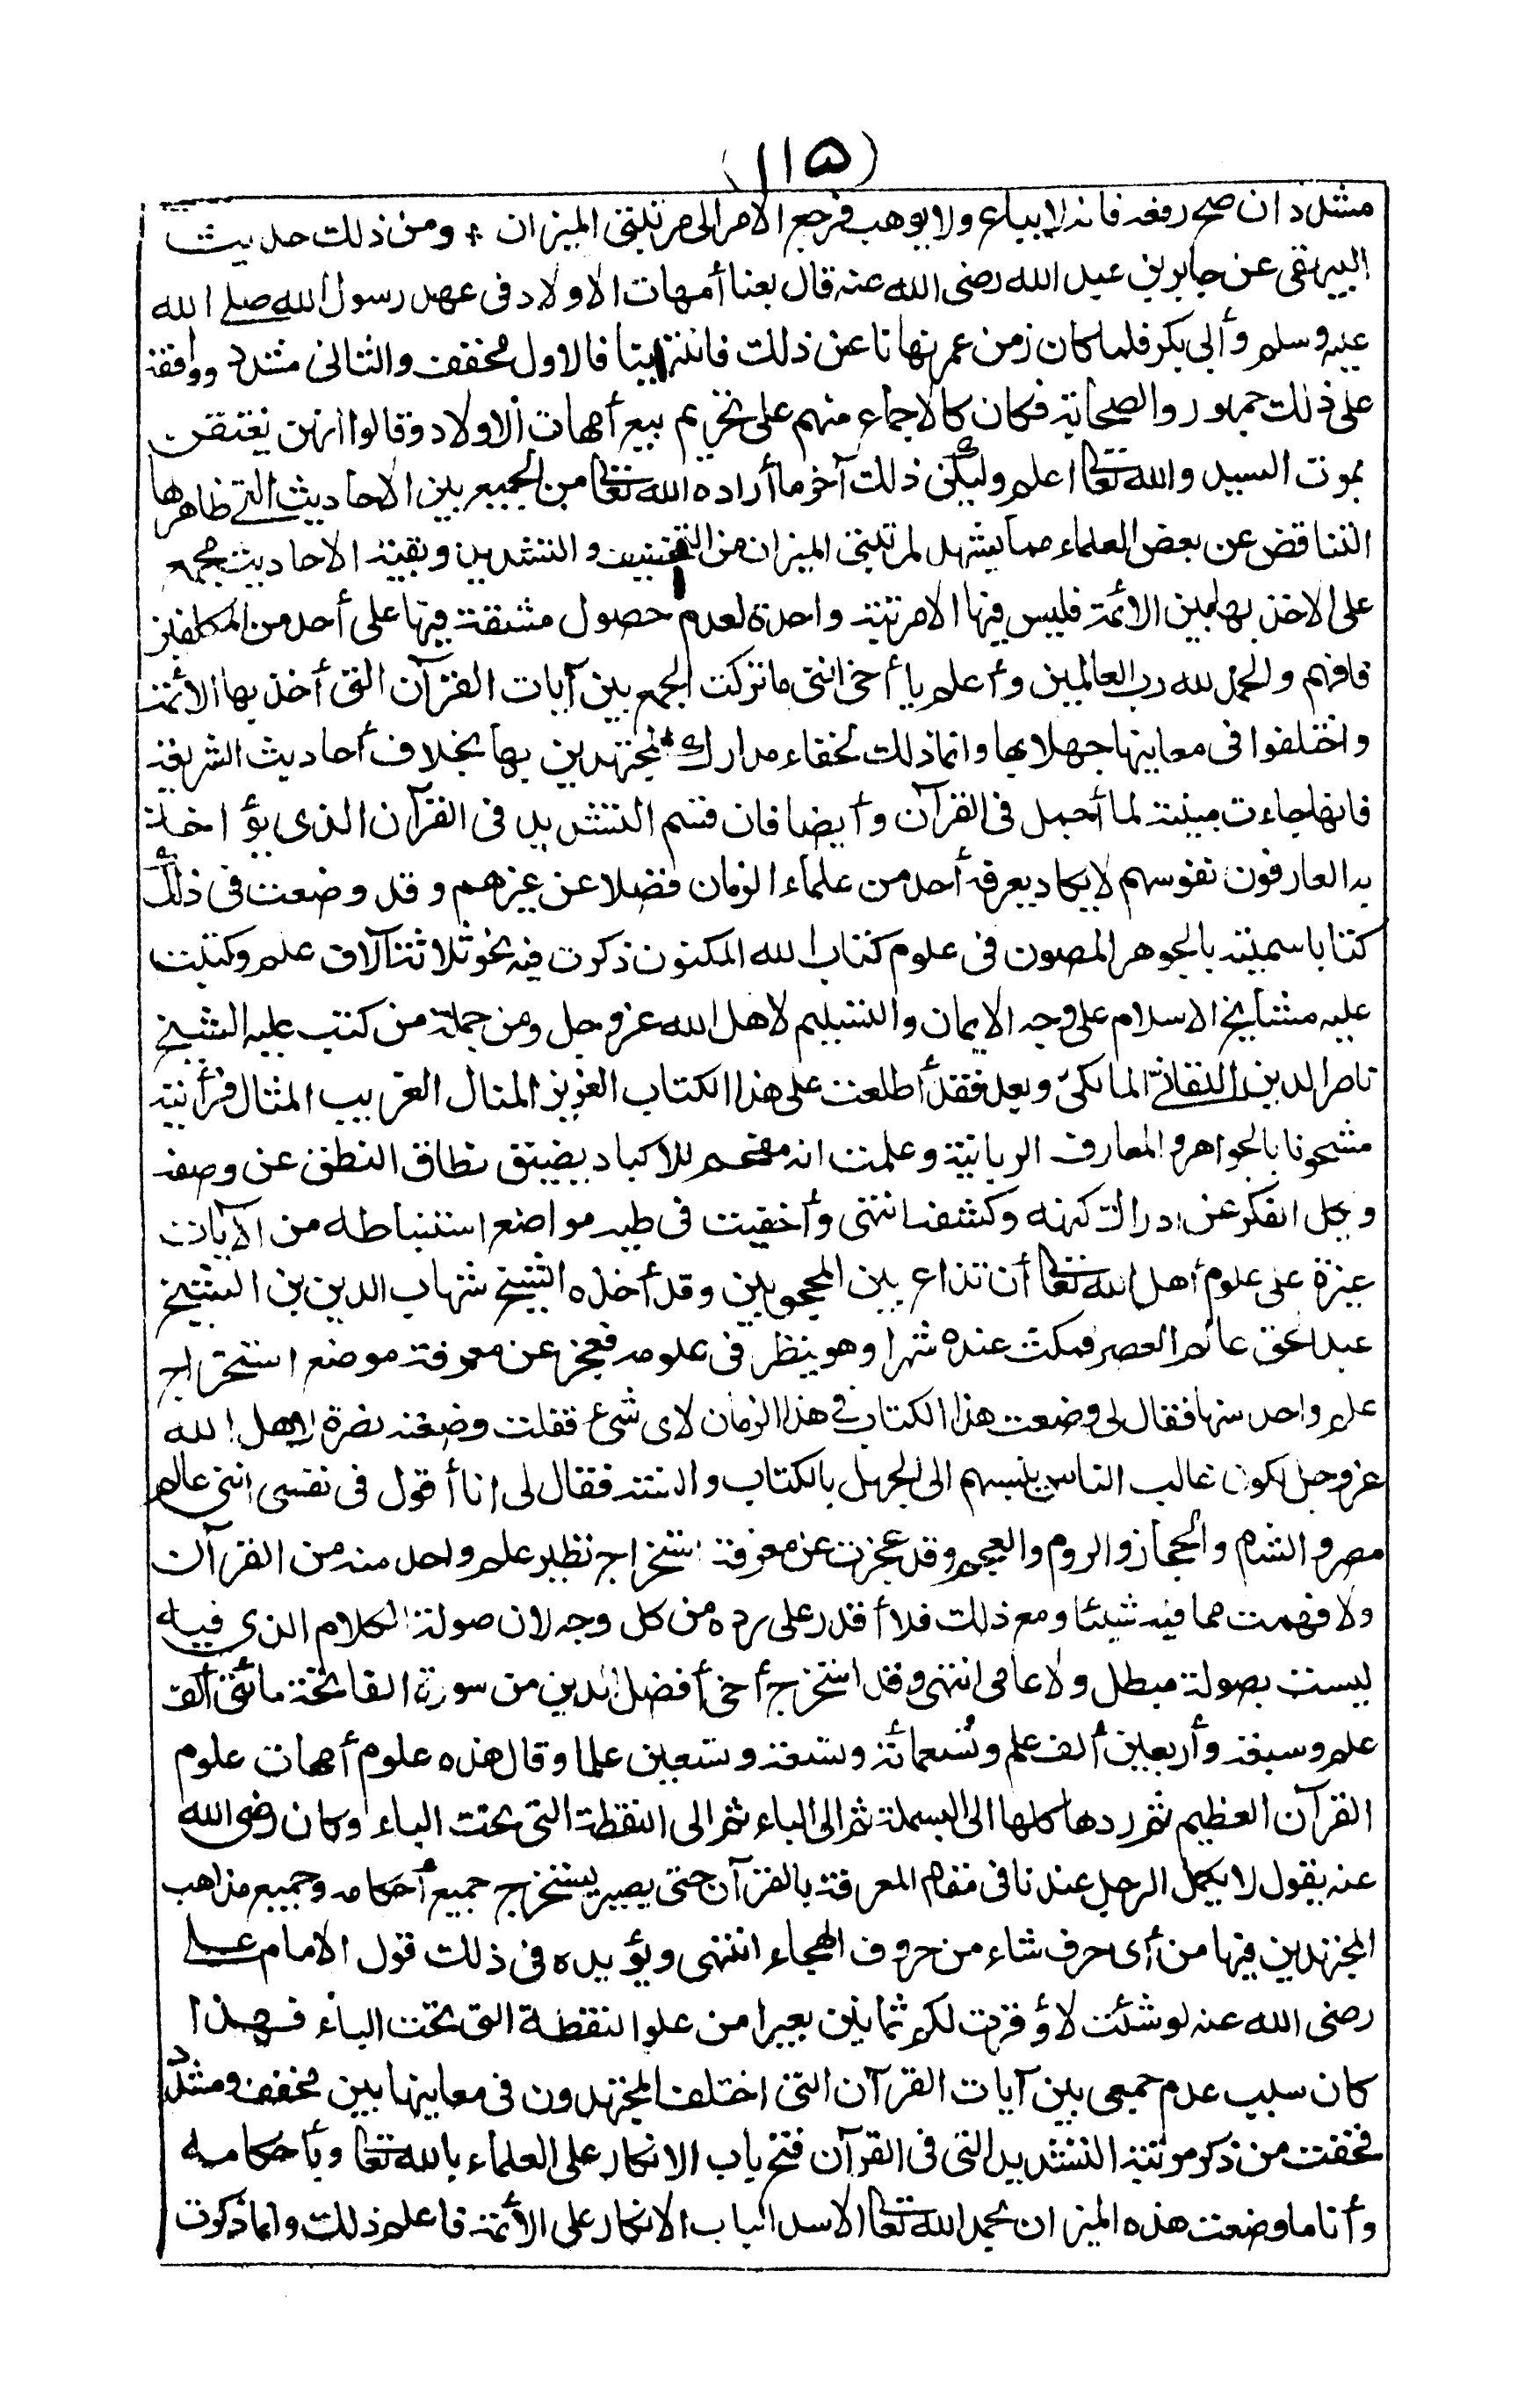 (١١٥)
مشدد ان صح رفعه فانه لا يباع ولا يوهب فرجع الامر الى مرتبتى الميزان * ومن ذلك حديث
البيهقى عن جابر بن عبد الله رضى الله عنه قال بعنا أمهات الاولاد فى عهد رسول الله صلى الله
عليه وسلم وأبى بكر فلما كان زمن عمر نهانا عن ذلك فانتهينا فالاول مخفف والثانى مشدد ووافقه
على ذلك جمهور والصحابة فكان كالاجماع منهم على تحريم بيع أمهات الاولاد وقالوا انهن يعتقن
بموت السيد والله تعالى اعلم وليكن ذلك آخر ما أراده الله تعالى من الجمع بين الاحاديث التى ظاهرها
التناقض عن بعض العلماء مما يشهد لمرتبتى الميزان من التخفيف والتشديد وبقية الاحاديث مجمع
على الاخذ بها بين الائمة فليس فيها الا مرتبة واحدة لعدم حصول مشقة فيها على أحد من المكلفين
فافهم والحمد لله رب العالمين وأعلم يا أخى اننى ما تركت الجمع بين آيات القرآن التى أخذ بها الأئمة
واختلفوا فى معانيها جهلا بها وانما ذلك لخفاء مدارك المجتهدين بها بخلاف أحاديث الشريفة
فانها جاءت مبينة لما أجمل فى القرآن وأيضا فان قسم التشديد فى القرآن الذى يؤاخذ
به العارفون نفوسهم لا يكاد يعرفه أحد من علماء الزمان فضلا عن غيرهم وقد وضعت فى ذلك
كتابا سميته بالجوهر المصون فى علوم كتاب الله المكنون ذكرت فيه نحو ثلاثة آلاف علم وكتبت
عليه مشايخ الاسلام على وجه الايمان والتسليم لاهل الله عز وجل ومن جملة من كتب عليه الشيخ
ناصر الدين اللقانى المالكى وبعد فقد أطلعت على هذا الكتاب العزيز المنال الغريب المثال فرأيته
مشحونا بالجواهر والمعارف الربانية وعلمت انه مفحم للاكباد يضيق نطاق النطق عن وصفه
ويكل الفكر عن ادراك كنهه وكشفه انتهى وأخفيت فى طيه مواضع استنباطه من الآيات
غيرة على علوم أهل الله تعالى أن تذاع بين المحجوبين وقد أخذه الشيخ شهاب الدين بن الشيخ
عبد الحق عالم العصر فمكث عنده شهرا وهو ينظر فى علومه فعجز عن معرفة موضع استخراج
علم واحد منها فقال لى وضعت هذا الكتاب فى هذا الزمان لاى شئ فقلت وضعته نصرة لاهل الله
عز وجل لكون غالب الناس ينسبهم الى الجهل بالكتاب والسنة فقال لى انا أقول فى نفسى اننى عالم
مصر والشام والحجاز والروم والعجم وقد عجزت عن معرفة استخراج نظير علم واحد منه من القرآن
ولا فهمت مما فيه شيئا ومع ذلك فلا أقدر على رده من كل وجه لان صولة الكلام الذى فيه
ليست بصولة مبطل ولا عامى انتهى وقد استخرج أخى أفضل الدين من سورة الفاتحة مائتى ألف
علم وسبعة وأربعين ألف علم وتسعمائة وتسعة وتسعين علما وقال هذه علوم أمهات علوم
القرآن العظيم ثم ردها كلها الى البسملة ثم الى الباء ثم الى النقطة التى تحت الباء وكان رضى الله
عنه يقول لا يكمل الرجل عندنا فى مقام المعرفة بالقرآن حتى يصير يستخرج جميع أحكامه وجميع مذاهب
المجتهدين فيها من أى حرف شاء من حروف الهجاء انتهى ويؤيده فى ذلك قول الامام على
رضى الله عنه لو شئت لأوقرت لكم ثمانين بعيرا من علوا لنقطة التى تحت الباء فهذا
كان سبب عدم جمعى بين آيات القرآن التى اختلف المجتهدون فى معانيها بين مخفف ومشدد
فخفت من ذكر مرتبة التشديد التى فى القرآن فتح باب الانكار على العلماء بالله تعالى وبأحكامه
وأنا ما وضعت هذه الميزان بحمد الله تعالى الا سدا لباب الانكار على الأئمة فاعلم ذلك وانما ذكرت